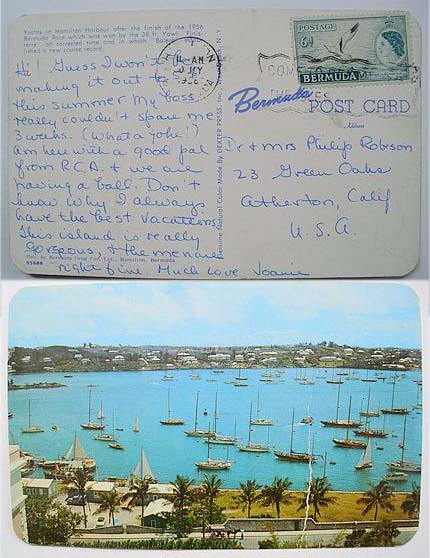 Yachts in Hamilton Harbour after the finish of the 1956
Bermuda Race which was won by the 38 ft. Yawl "Finis-
terre" on corrected time and in which "Bolero" estab-
lished a new course record.
Hi! Guess I won't be
making it out to
this summer. My boss
really couldn't spare me
3 weeks. (What a joke!)
Am here with a good pal
from R.C.A. & we are
having a ball. Don't
know why I always
have the best vacations.
This island is really
gorgeous, & the men are
right fine. Much love Joanie
Pub. by Bermuda Drug Co., Ltd., Hamilton, Bermuda
Genuine Natural Color Made by DEXTER PRESS, INC.
N. Y.
POSTAGE
6d
BERMUDA
11 - AM
JLY
Bermuda
POST CARD
Address
Dr & Mrs Philip Robeson
23 Green Oaks
Atherton, Calif
U.S.A.